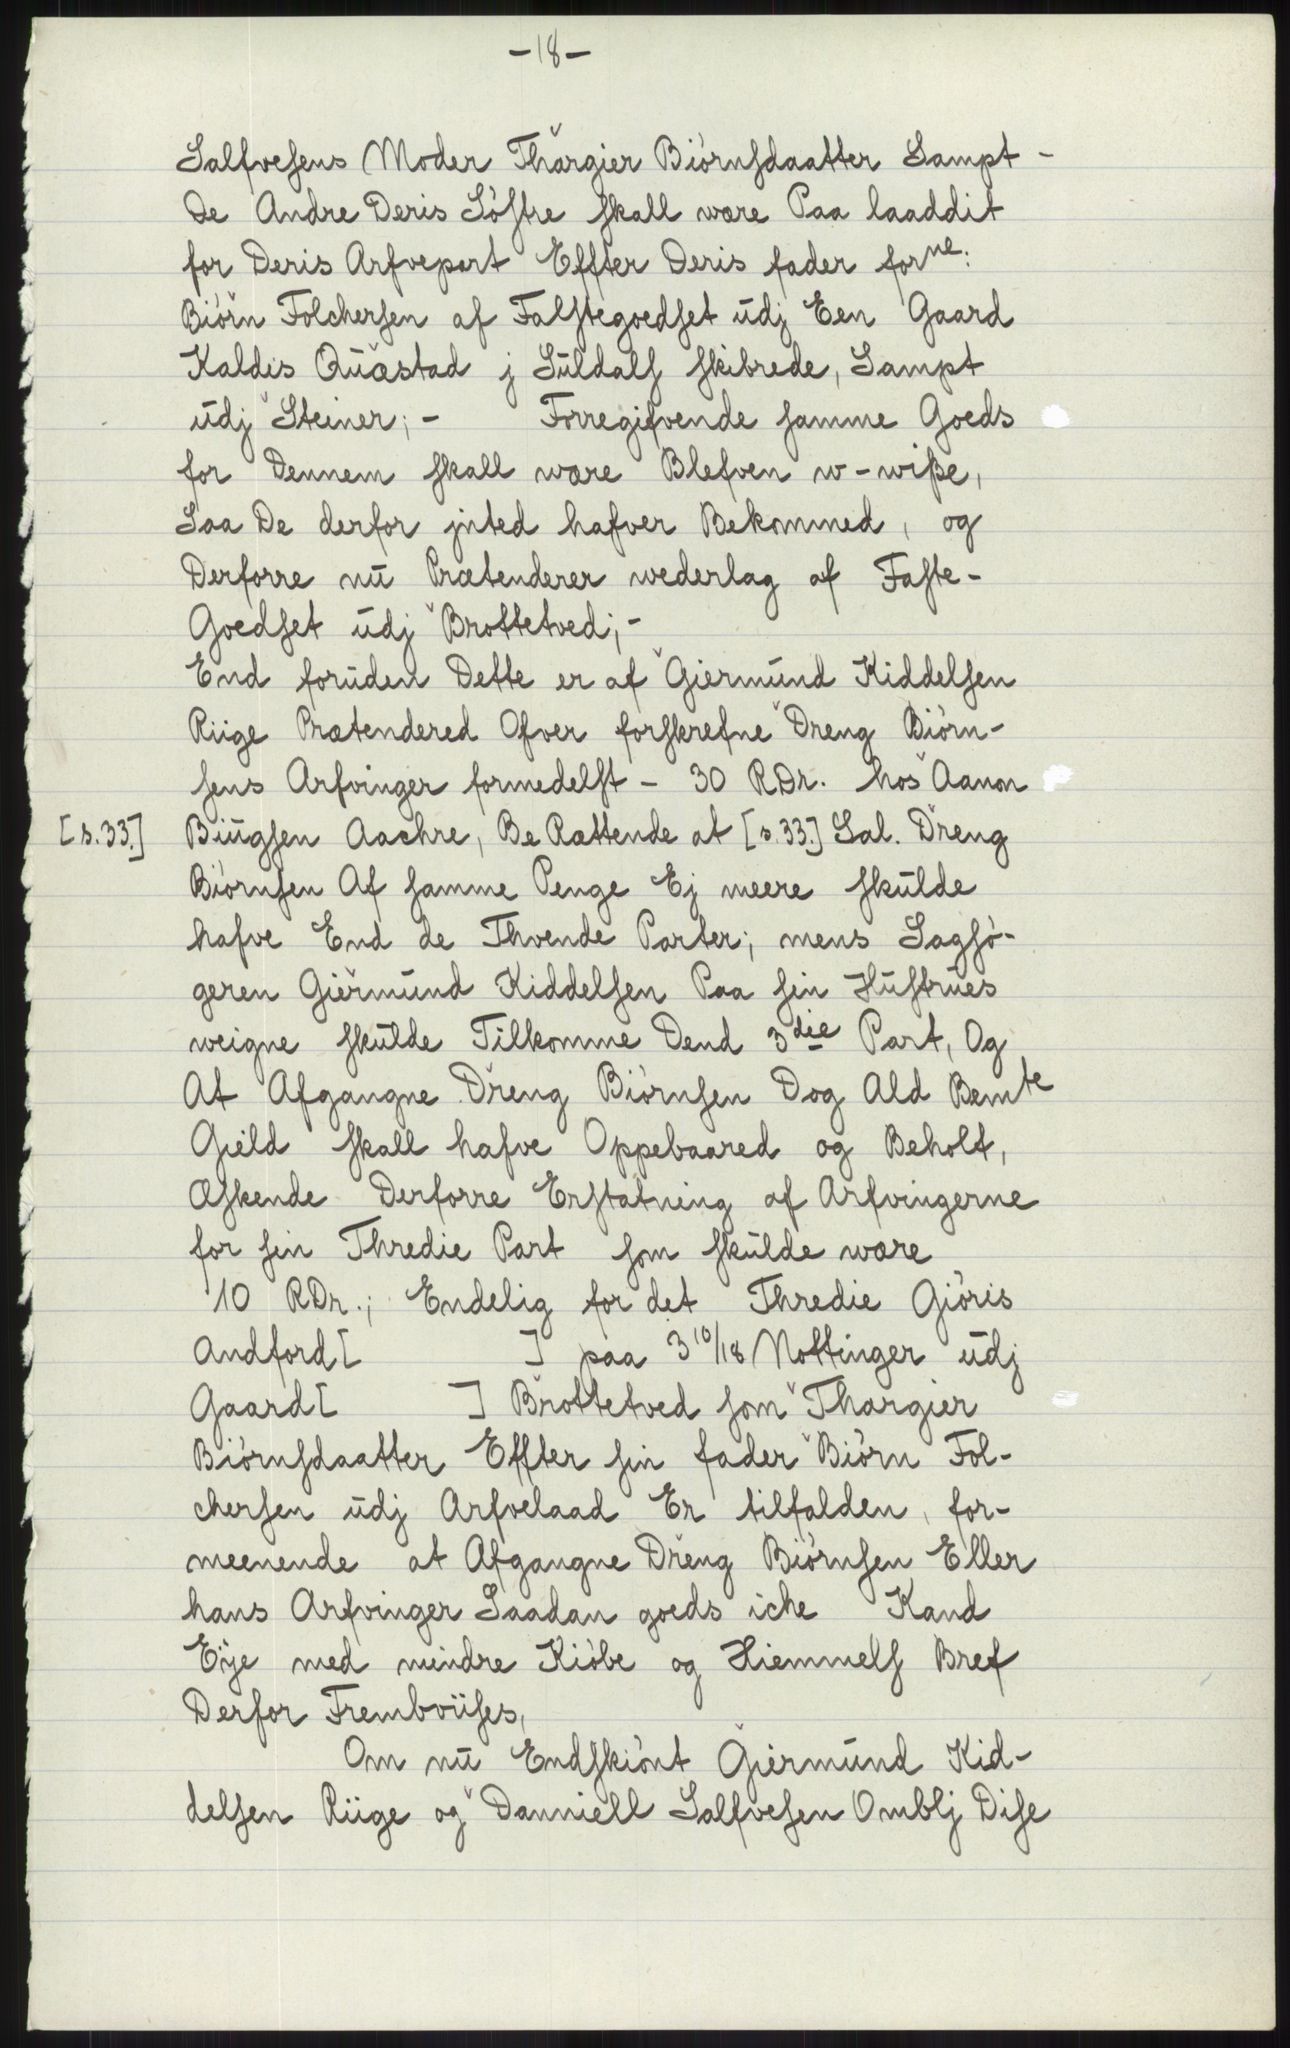 -18-
Salfvesens Moder Thargier Biörnsdaatter Sampt -
De Andre Deris Söstre skall wære Paa laaddit
for Deris Arfvepart Effter Deris fader forne:
Biörn Folchersen af Falstegoedset udj Een Gaard
Kaldis Quæstad j Suldals skibrede, Sampt
udj Steiner; - Forregifvende samme Goeds
for Dennem skall wære Blefven w-wiße,
Saa De derfor jnted hafver Bekommed, og
Derforre nu Prætenderer wederlag af Faste-
Goedset udj Brottetved; -
End foruden Dette er af Giermund Kiddelsen
Riige Prætendered Ofver forskrefne Dreng Biörn-
sens Arfvinger formedelst - 30 RDr. hos Aanon
[s.33.] Biugsen Aachre, Be Rættende at [s.33.] Sal. Dreng
Biörnsen Af samme Penge Ej meere skulde
hafve End de Thvende Parter; mens Sagsö-
geren Giermund Kiddelsen Paa sin Hustrues
weigne skulde Tilkomme Dend 3die Part, Og
At Afgangne Dreng Biörnsen Dog Ald Bemte
Gield skall hafve Oppebaared og Beholt,
Æskende Derforre Erstatning af Arfvingerne
for sin Thredie Part som skulde wære
10 RDr.; Endelig for det Thredie Giöris
Andford[ ] paa 3 10/18 Nottinger udj
Gaard[ ] Brottetved som Thargier
Biörnsdaatter Effter sin fader Biörn Fol-
chersen udj Arfvelaad Er tilfalden, for-
meenende at Afgangne Dreng Biörnsen Eller
hans Arfvinger Saadan goeds iche Kand
Eÿe med mindre Kiöbe og Hiemmels Bref
Derfor Fremboises,
Om nu Endskiönt Giermund Kid-
delsen Riige og Danniell Salfvesen Omblj Dise